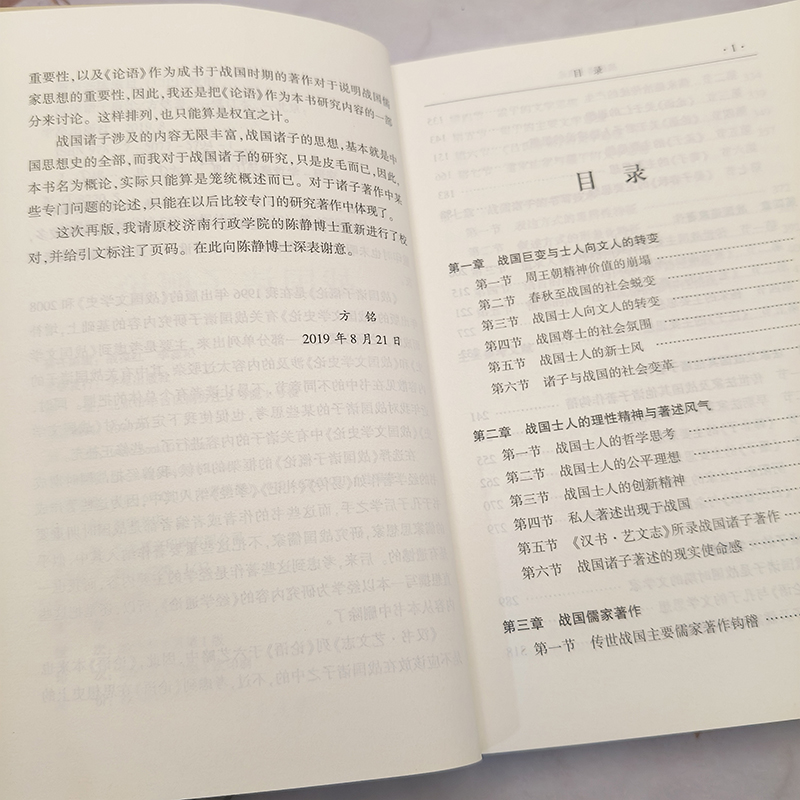 重要性，以及《论语》作为成书于战国时期的著作对于说明战国儒
家思想的重要性，因此，我还是把《论语》作为本书研究内容的一部
分来讨论。这样排列，也只能算是权宜之计。
战国诸子涉及的内容无限丰富，战国诸子的思想，基本就是中
国思想史的全部，而我对于战国诸子的研究，只是皮毛而已，因此，
本书名为概论，实际只能算是笼统概述而已。对于诸子著作中某
些专门问题的论述，只能在以后比较专门的研究著作中体现了。
这次再版，我请原校济南行政学院的陈静博士重新进行了校
对，并给引文标注了页码。在此向陈静博士深表谢意。
方 铭
2019 年 8 月 21 日
·1·
目 录
第一章 战国巨变与士人向文人的转变
第一节 周王朝精神价值的崩塌
第二节 春秋至战国的社会蜕变
第三节 战国士人向文人的转变
第四节 战国尊士的社会氛围
第五节 战国士人的新士风
第六节 诸子与战国的社会变革
第二章 战国士人的理性精神与著述风气
第一节 战国士人的哲学思考
第二节 战国士人的公平理想
第三节 战国士人的创新精神
第四节 私人著述出现于战国
第五节 《汉书·艺文志》所录战国诸子著作
第六节 战国诸子著述的现实使命感
第三章 战国儒家著作
第一节 传世战国主要儒家著作钩稽